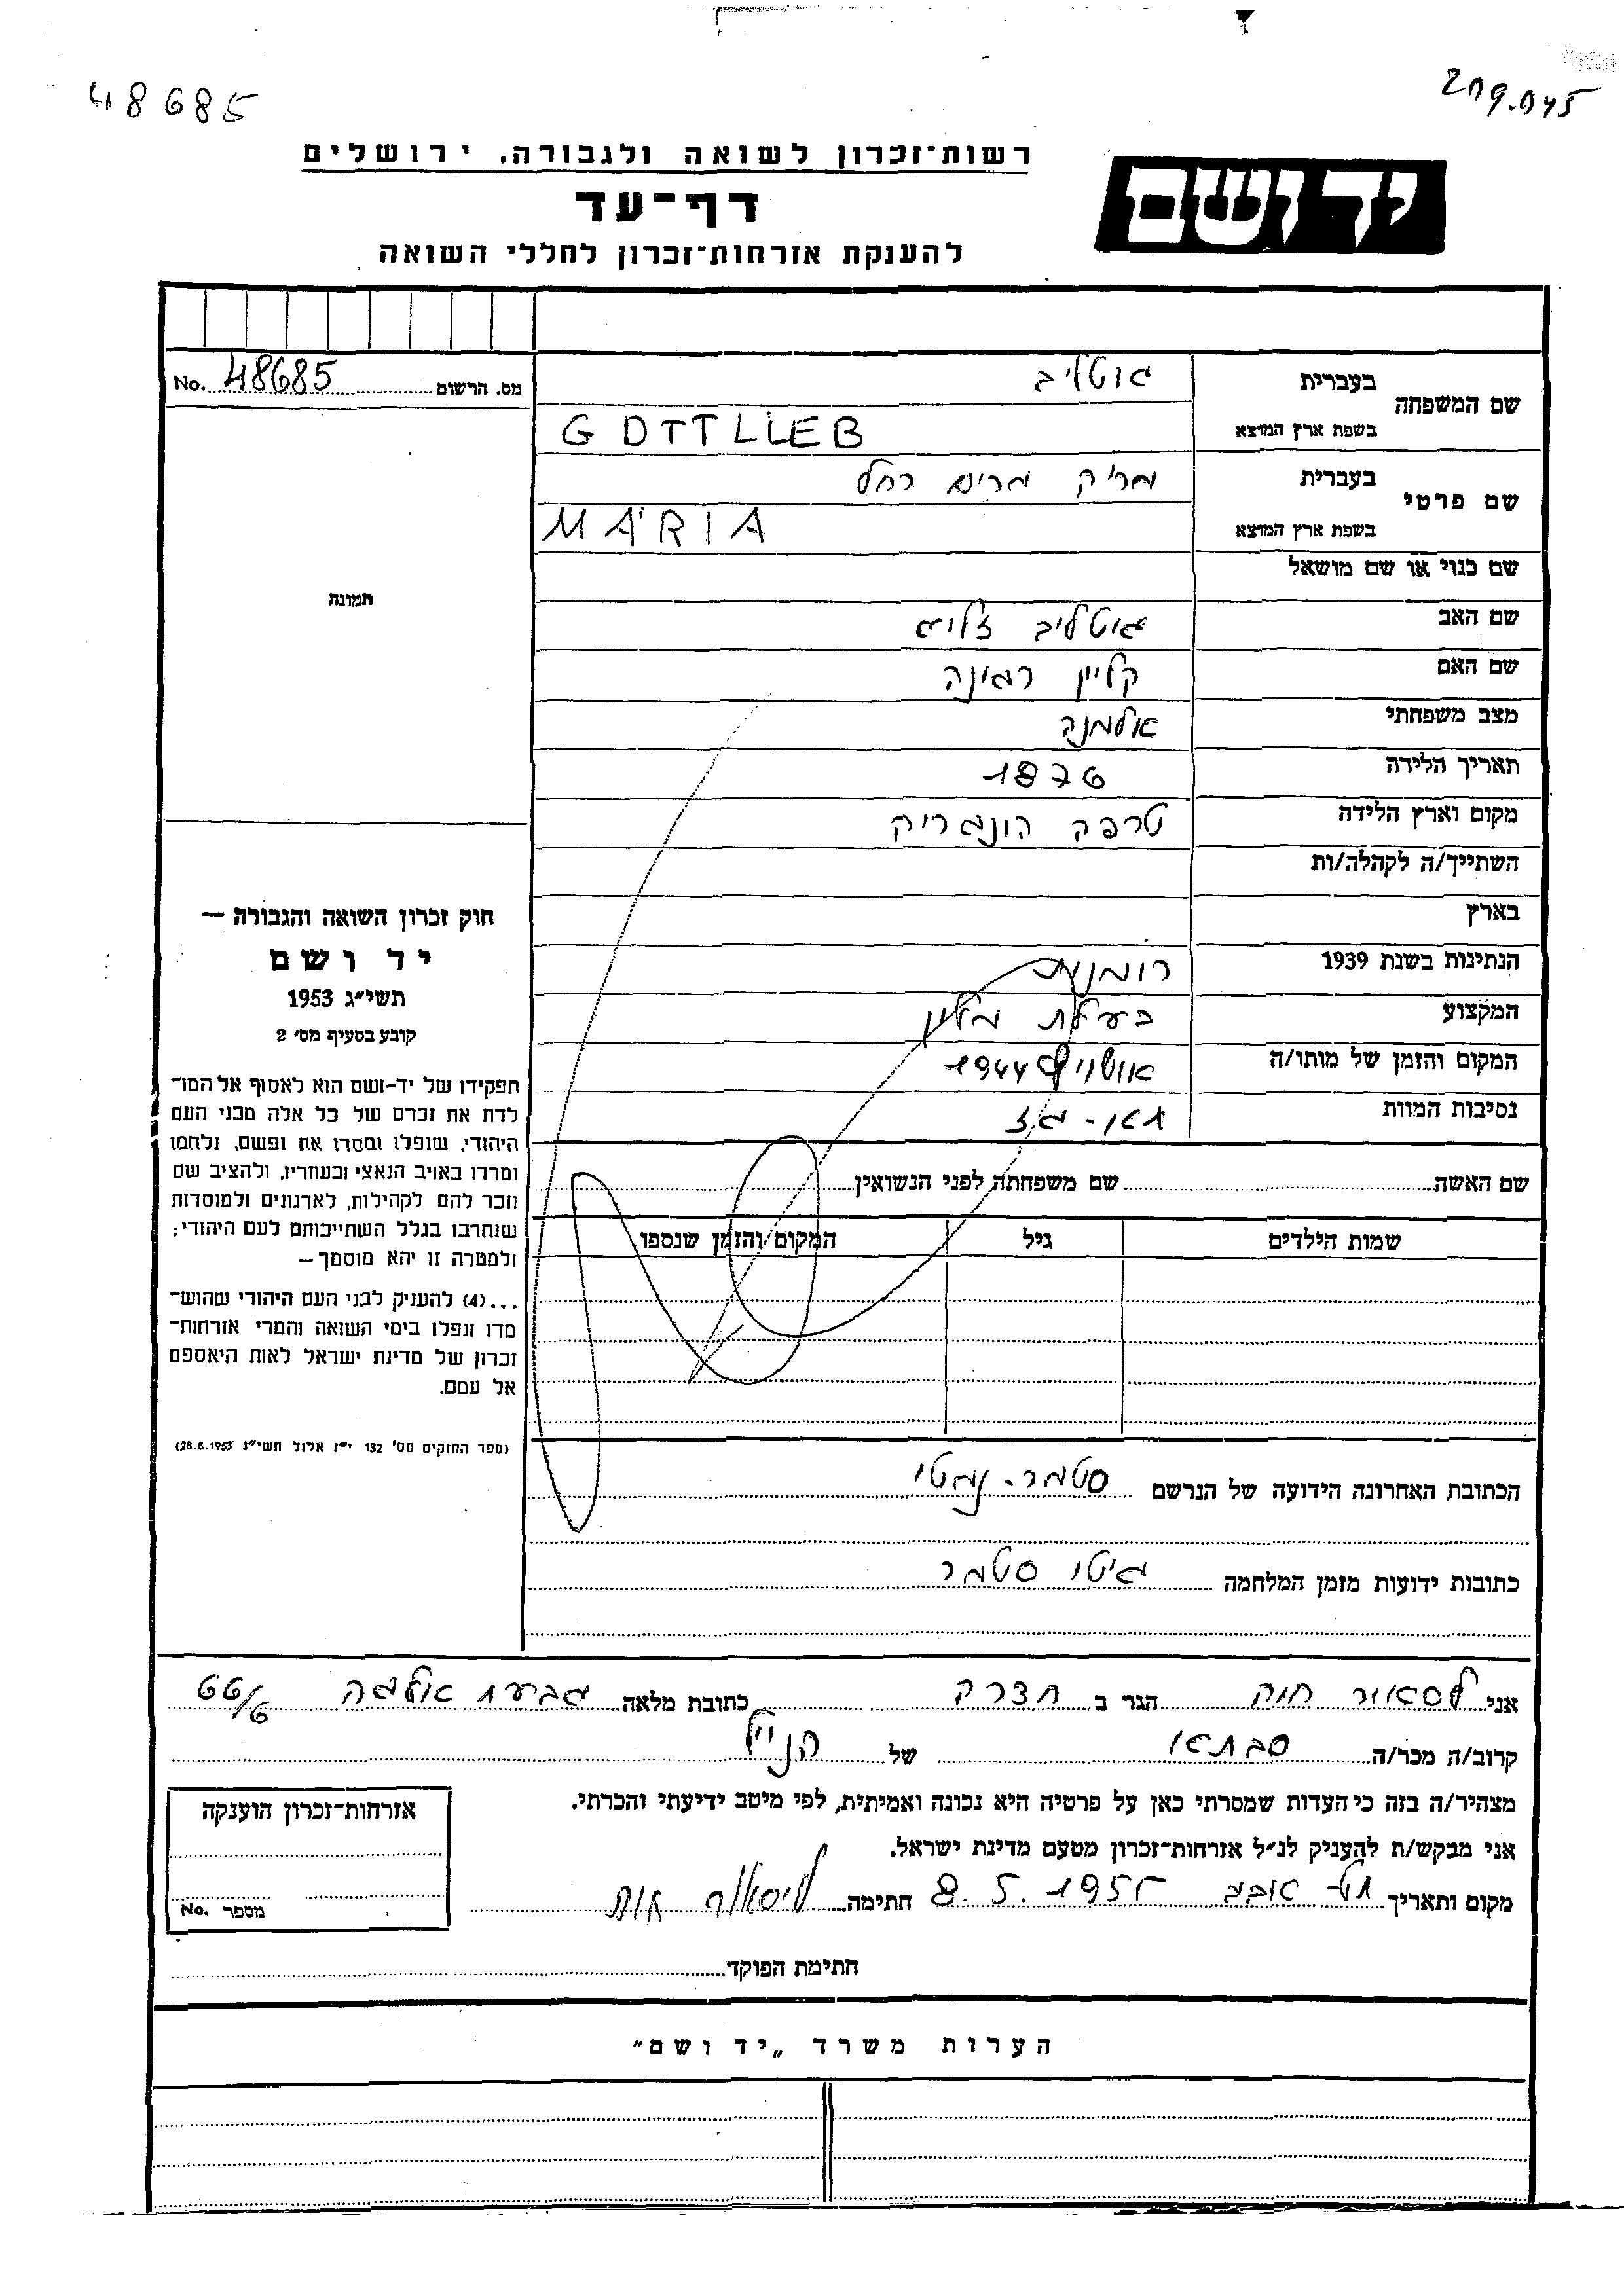 48685
209.045
רשות־זכרון לשואה ולגבורה, ירושלים
יד ושם
דף־עד
להענקת אזרחות־זכרון לחללי השואה
מס. הרשום 48685 No.
שם המשפחה בעברית גוטליב
בשפת ארץ המוצא GOTTLIEB
שם פרטי בעברית מרים רחל
בשפת ארץ המוצא MÁRIA
שם כנוי או שם מושאל
שם האב גוטליב זליג
שם האם קליין רגינה
מצב משפחתי אלמנה
תאריך הלידה 1876
מקום וארץ הלידה טרפה הונגריה
השתייך/ה לקהלה/ות
בארץ
הנתינות בשנת 1939 רומנית
המקצוע בעלת
המקום והזמן של מותו/ה 1944
נסיבות המוות תאי-גז
תמונה
חוק זכרון השואה והגבורה —
יד ושם
תשי״ג 1953
קובע בסעיף מס׳ 2
תפקידו של יד-ושם הוא לאסוף אל המו־
לדת את זכרם של כל אלה מבני העם
היהודי, שנפלו ומסרו את נפשם, נלחמו
ומרדו באויב הנאצי ובעוזריו, ולהציב שם
וזכר להם לקהילות, לארגונים ולמוסדות
שנחרבו בגלל השתייכותם לעם היהודי;
ולמטרה זו יהא מוסמך —
...(4) להעניק לבני העם היהודי שהוש־
מדו ונפלו בימי השואה והמרי אזרחות־
זכרון של מדינת ישראל לאות היאספם
אל עמם.
(ספר החוקים מס׳ 132 י״ז אלול תשי״ג 28.8.1953)
שם האשה שם משפחתה לפני הנשואין
שמות הילדים גיל המקום והזמן שנספו
הכתובת האחרונה הידועה של הנרשם סטמר-נמטי
כתובות ידועות מזמן המלחמה גיטו סטמר
אני הגר ב חדרה כתובת מלאה גבעת אולגה 66/6
קרוב/ה מכר/ה סבתא של הנ״ל
מצהיר/ה בזה כי העדות שמסרתי כאן על פרטיה היא נכונה ואמיתית, לפי מיטב ידיעתי והכרתי.
אני מבקש/ת להעניק לנ״ל אזרחות־זכרון מטעם מדינת ישראל.
מקום ותאריך תל אביב 8.5.1955 חתימה
אזרחות־זכרון הוענקה
מספר No.
חתימת הפוקד
הערות משרד „יד ושם״